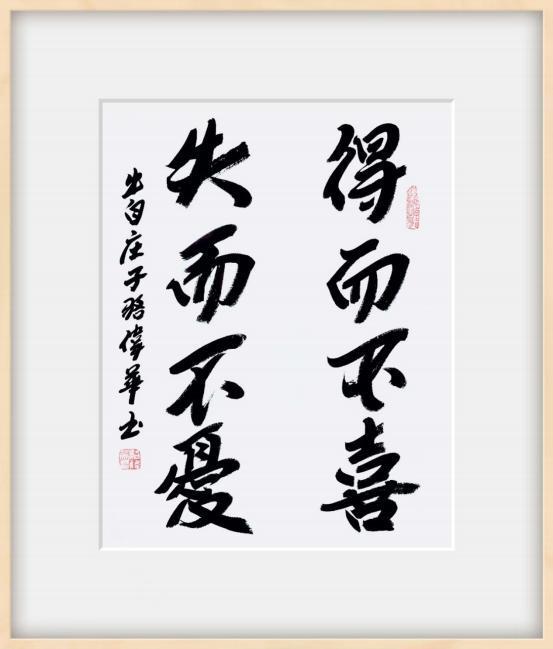 得而不喜
失而不憂
出自庄子路偉華书